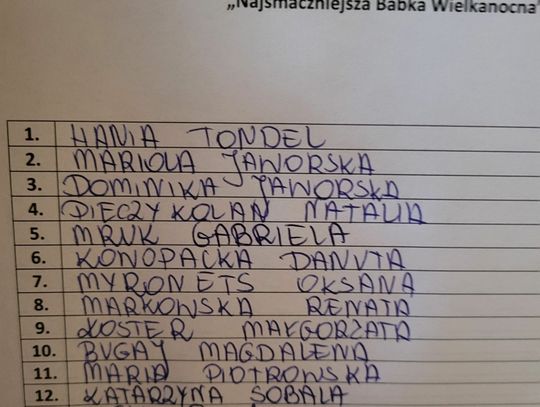 „Najsmaczniejsza Babka Wielkanocna"
1. HANIA TONDEL
2. MARIOLA JAWORSKA
3. DOMINIKA JAWORSKA
4. DIECZYKOLAN NATALIA
5. MRUK GABRIELA
6. KONOPACKA DANUTA
7. MYRONETS OKSANA
8. MARKOWSKA RENATA
9. KOSTER MAŁGORZATA
10. BUGAJ MAGDALENA
11. MARIA PIOTROWSKA
12. KATARZYNA SOBALA